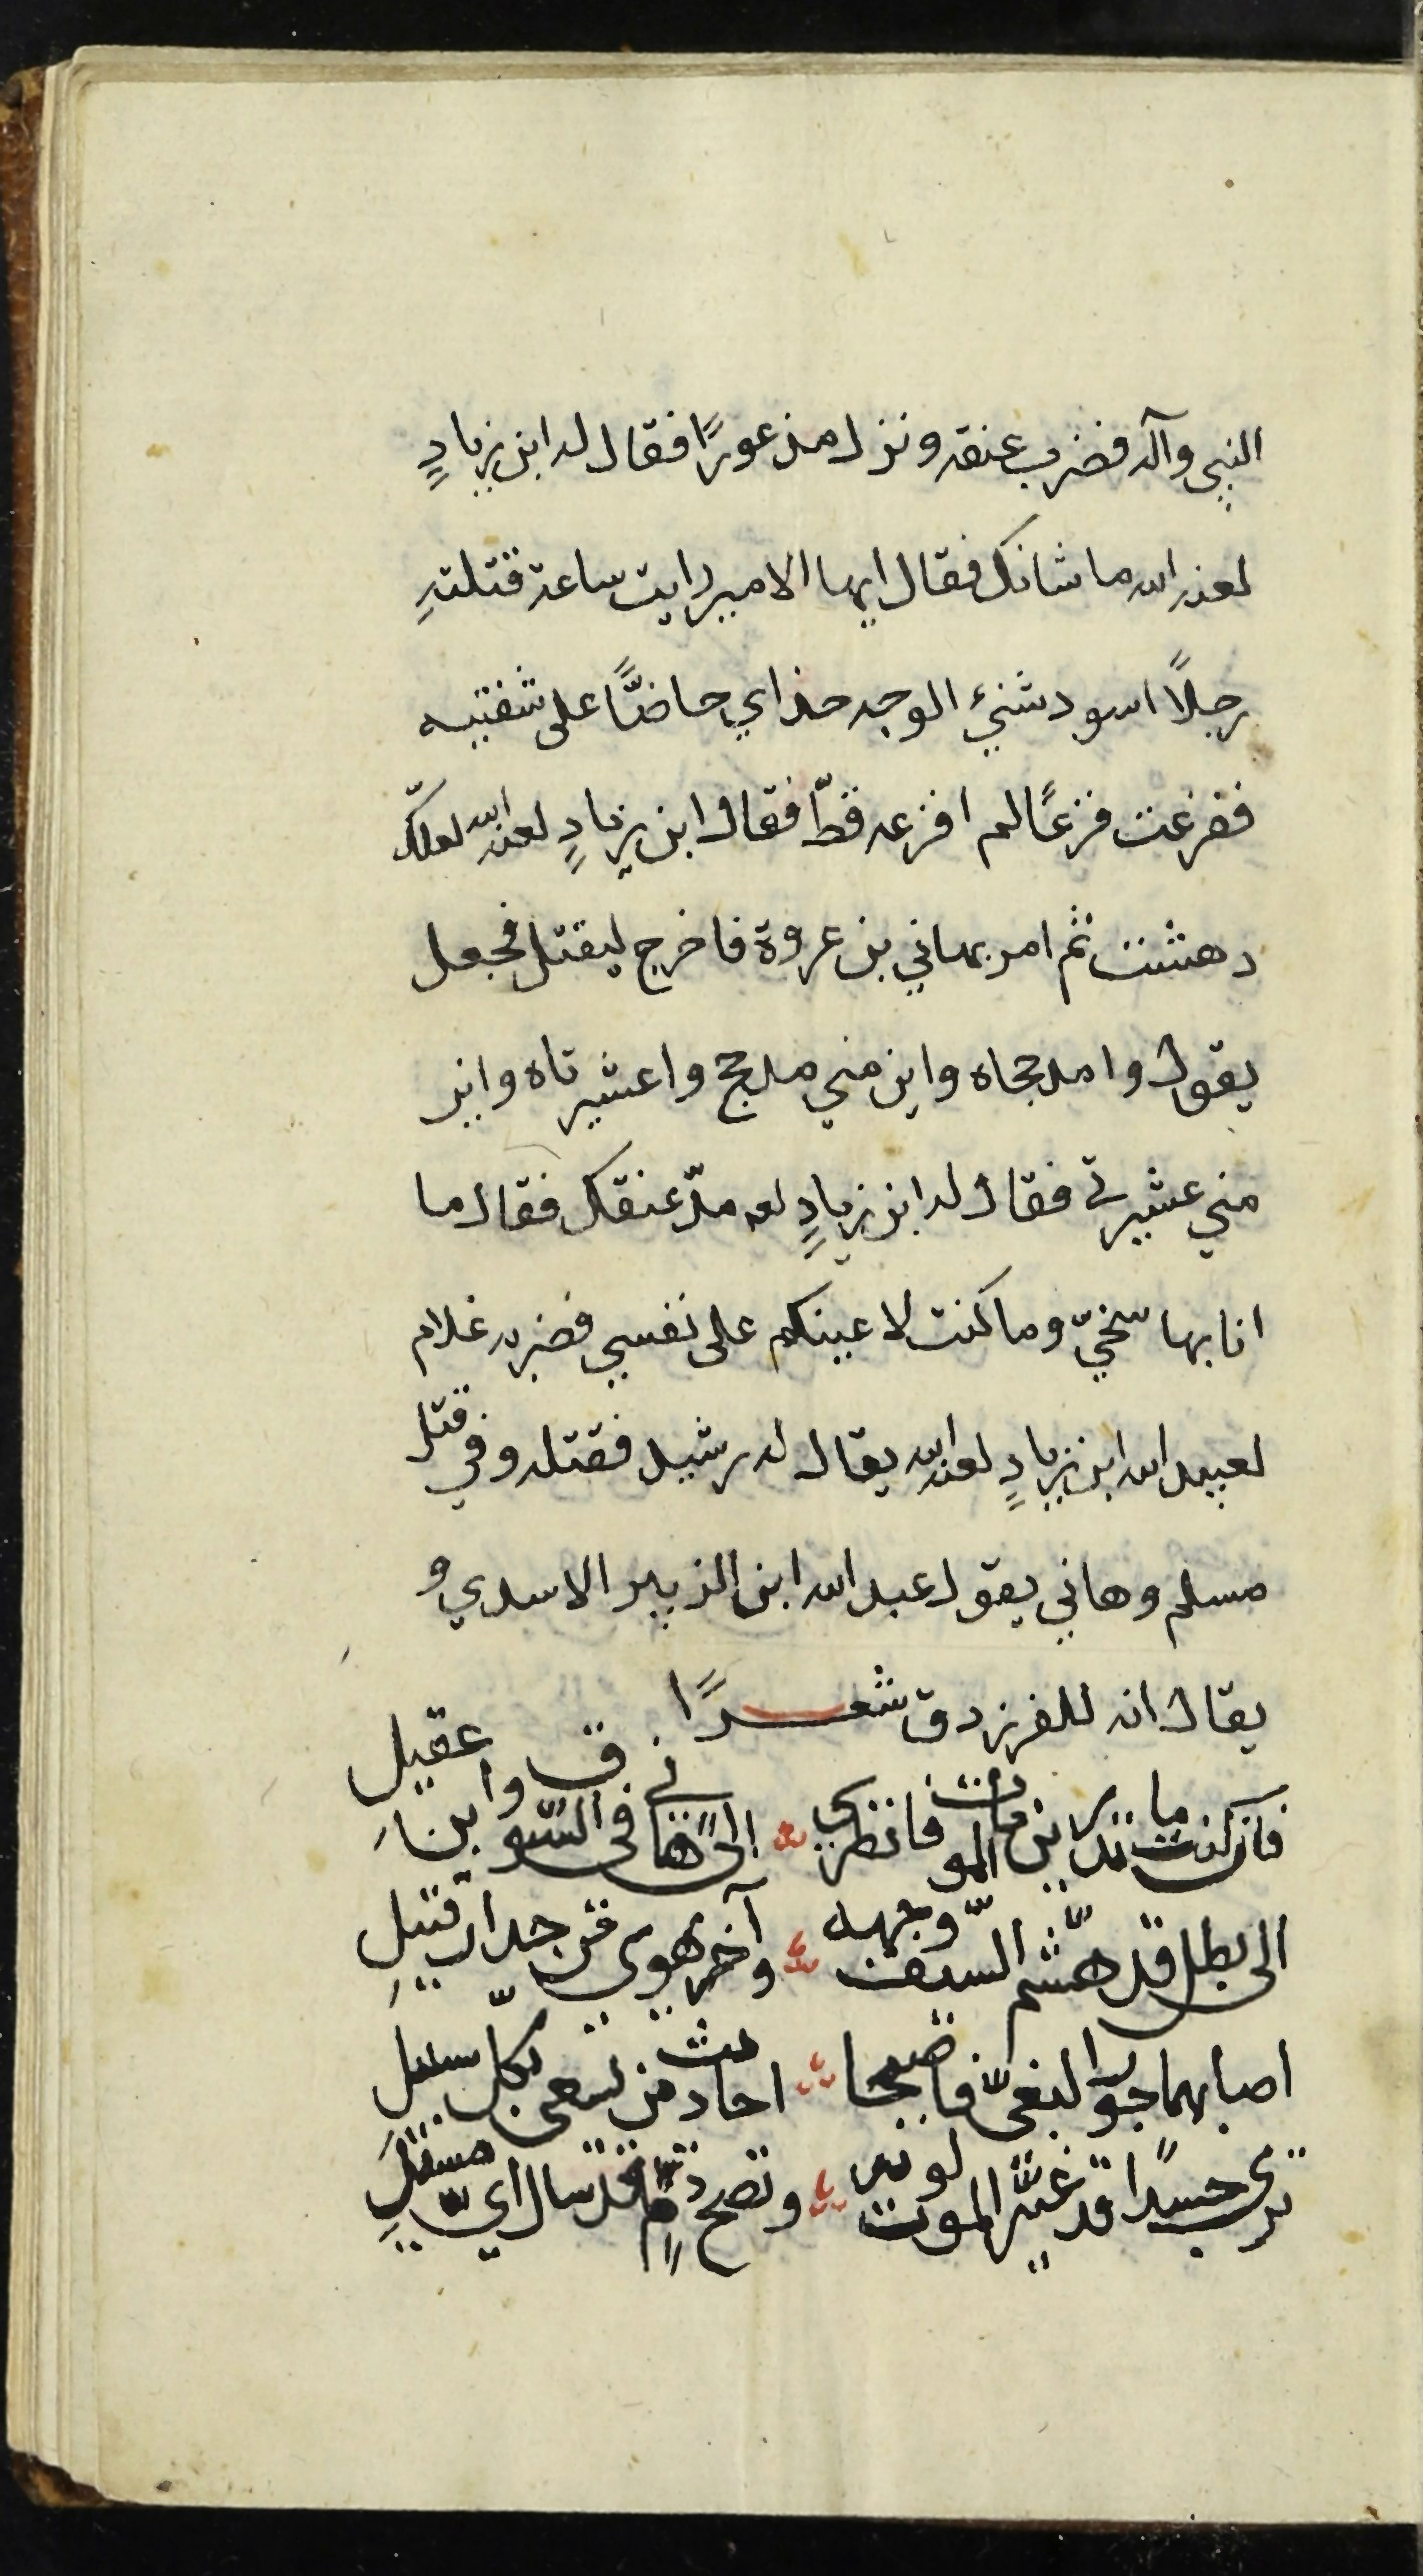 النبي وآله فضرب عنقه ونزل مذعورًا فقال له ابن زيادٍ
لعنه الله ما شانك فقال ايها الامير رايت ساعة قتلتهِ
رجلاً اسود شنئ الوجه حذاي حاضًّا على شفتيه
ففزعت فزعًا لم افزعه قطّ فقال ابن زيادٍ لعنه الله لعلّك
دهشت ثم امر بهاني بن عروة فاخرج ليقتل فجعل
يقول وا مدحجاه واين مني مدحج واعشيرتاه واين
مني عشيرتي فقال له ابن زيادٍ لعه مدّ عنقك فقال ما
انا بها سخيّ وما كنت لاعينكم على نفسي فضربه غلام
لعبيد الله ابن زيادٍ لعنه الله يقال له رشيد فقتله وفي قتل
مسلم وهاني يقول عبد الله ابن الزبير الاسدي و
يقال انه للفرزدق شعرًا
فان كنت ما تدرين ما الموت فانظري الى هاني في السّوق وابن عقيل
الى بطل قد هشّم السيف وجهه وآخر يهوي من جدار قتيلِ
اصابهما جور البغيّ فاصبحا احاديث من يسعى بكلّ سبيلِ
ترى جسدًا قد غيّر الموت لونه ونضح دمٍ قد سال ايّ مسيلِ